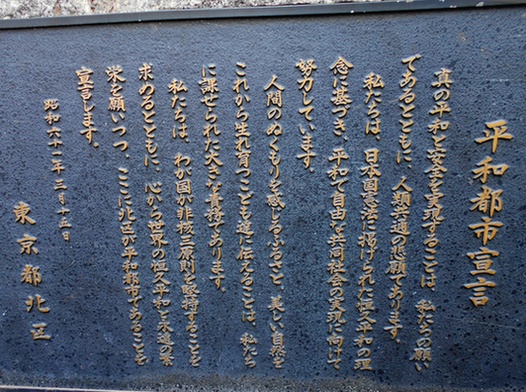 平和都市宣言
真の平和と安全を実現することは、私たちの願い
であるとともに、人類共通の悲願であります。
私たちは、日本国憲法に掲げられた恒久平和の理
念に基づき、平和で自由な共同社会の実現に向けて
努力しています。
人間のぬくもりを感じるふるさと、美しい自然を
これから生れ育つこども達に伝えることは、私たち
に課せられた大きな責務であります。
私たちは、わが国が非核三原則を堅持することを
求めるとともに、心から世界の恒久平和と永遠の繁
栄を願いつつ、ここに北区が平和都市であることを
宣言します。
昭和六十一年三月十五日
東京都北区